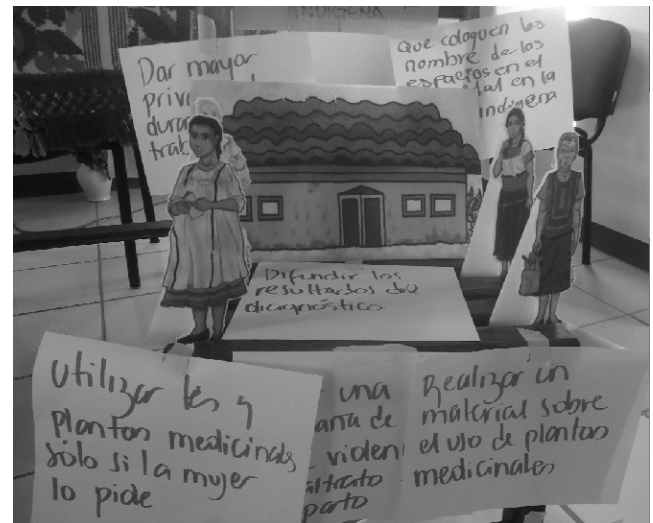 INDIGENA
Dar mayor
priv
dura
trab
Que coloquen los
nombre de los
espacios en el
tal en la
indigena
Difundir los
resultados del
diagnóstico
Utilizar les y
plantas medicinales
solo si la mujer
lo pide
una
aña de
violen
altrato
parto
Realizar un
material sobre
el uso de plantas
medicinales